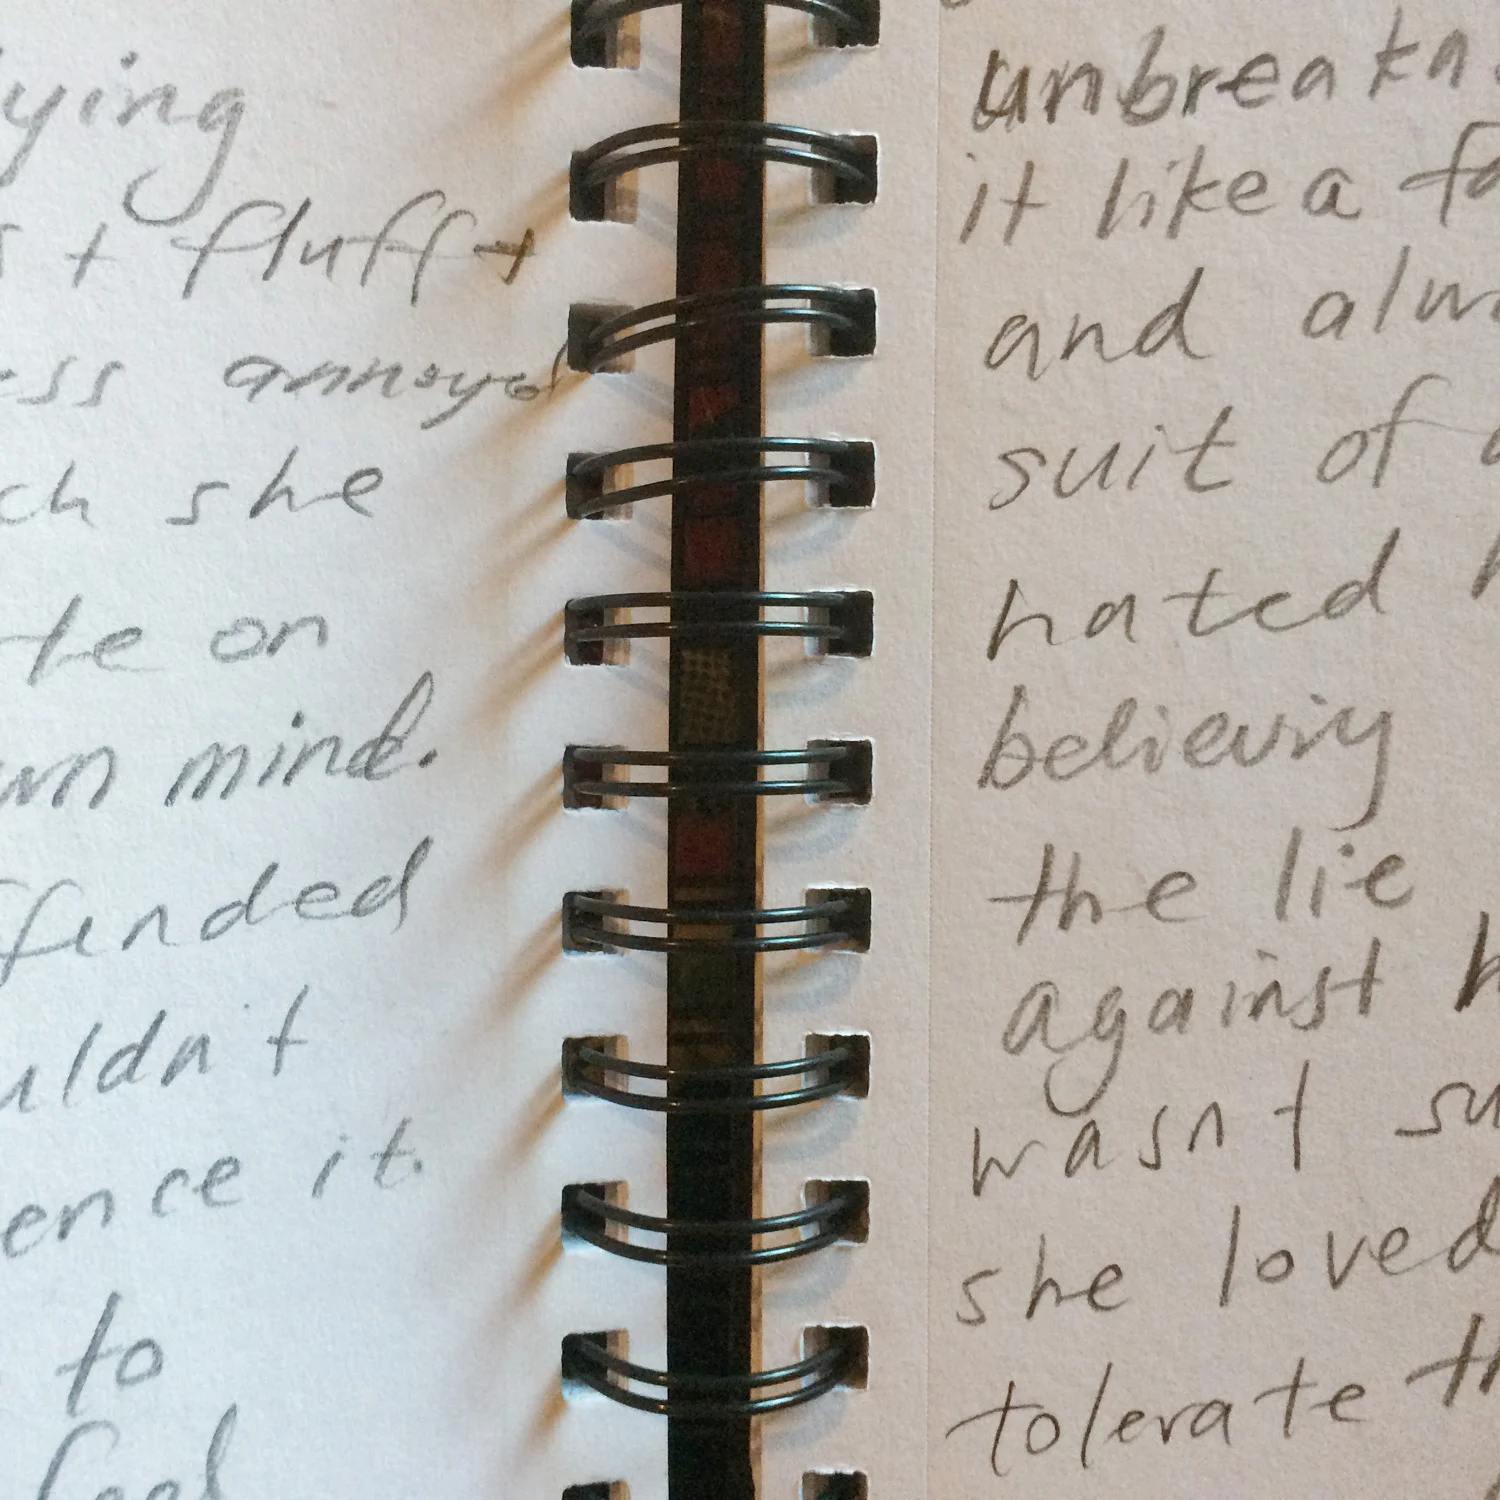 ying
s + fluff +
ess annoyed
ch she
te on
wn mind.
ffended
uldn't
ence it.
to
feel
unbreaka
it like a fa
and alw
suit of a
hated h
believing
the lie
against h
wasn't su
she loved
tolerate th